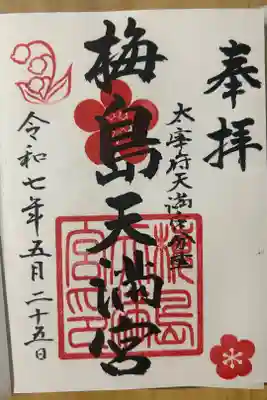 奉拝
太宰府天満宮御分霊
梅島天満宮
梅島天満宮印
令和七年五月二十五日